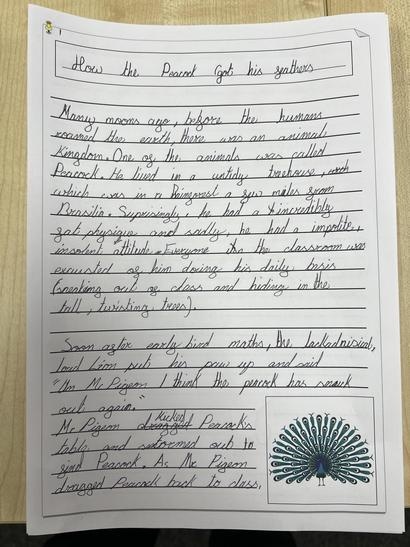 How the Peacock Got his feathers
Many moons ago, before the humans
roamed the earth, there was an animal
Kingdom. One of the animals was called
Peacock. He lived in a untidy treehouse,
which was in a Rainforest a few miles from
Brasilia. Suprisingly, he had a incredibly
fat physique and sadly, he had a impolite,
insolent attitude. Everyone in the classroom was
exausted of him doing his daily basis
(sneaking out of class and hiding in the
tall, twisting trees).
Soon after early bird maths, the lackadaisical,
loud Lion put his paw up and said
"Um Mr Pigeon I think the peacock has snuck
out again."
Mr Pigeon kicked Peacock's
table and stormed out to
find Peacock. As Mr Pigeon
dragged Peacock back to class,